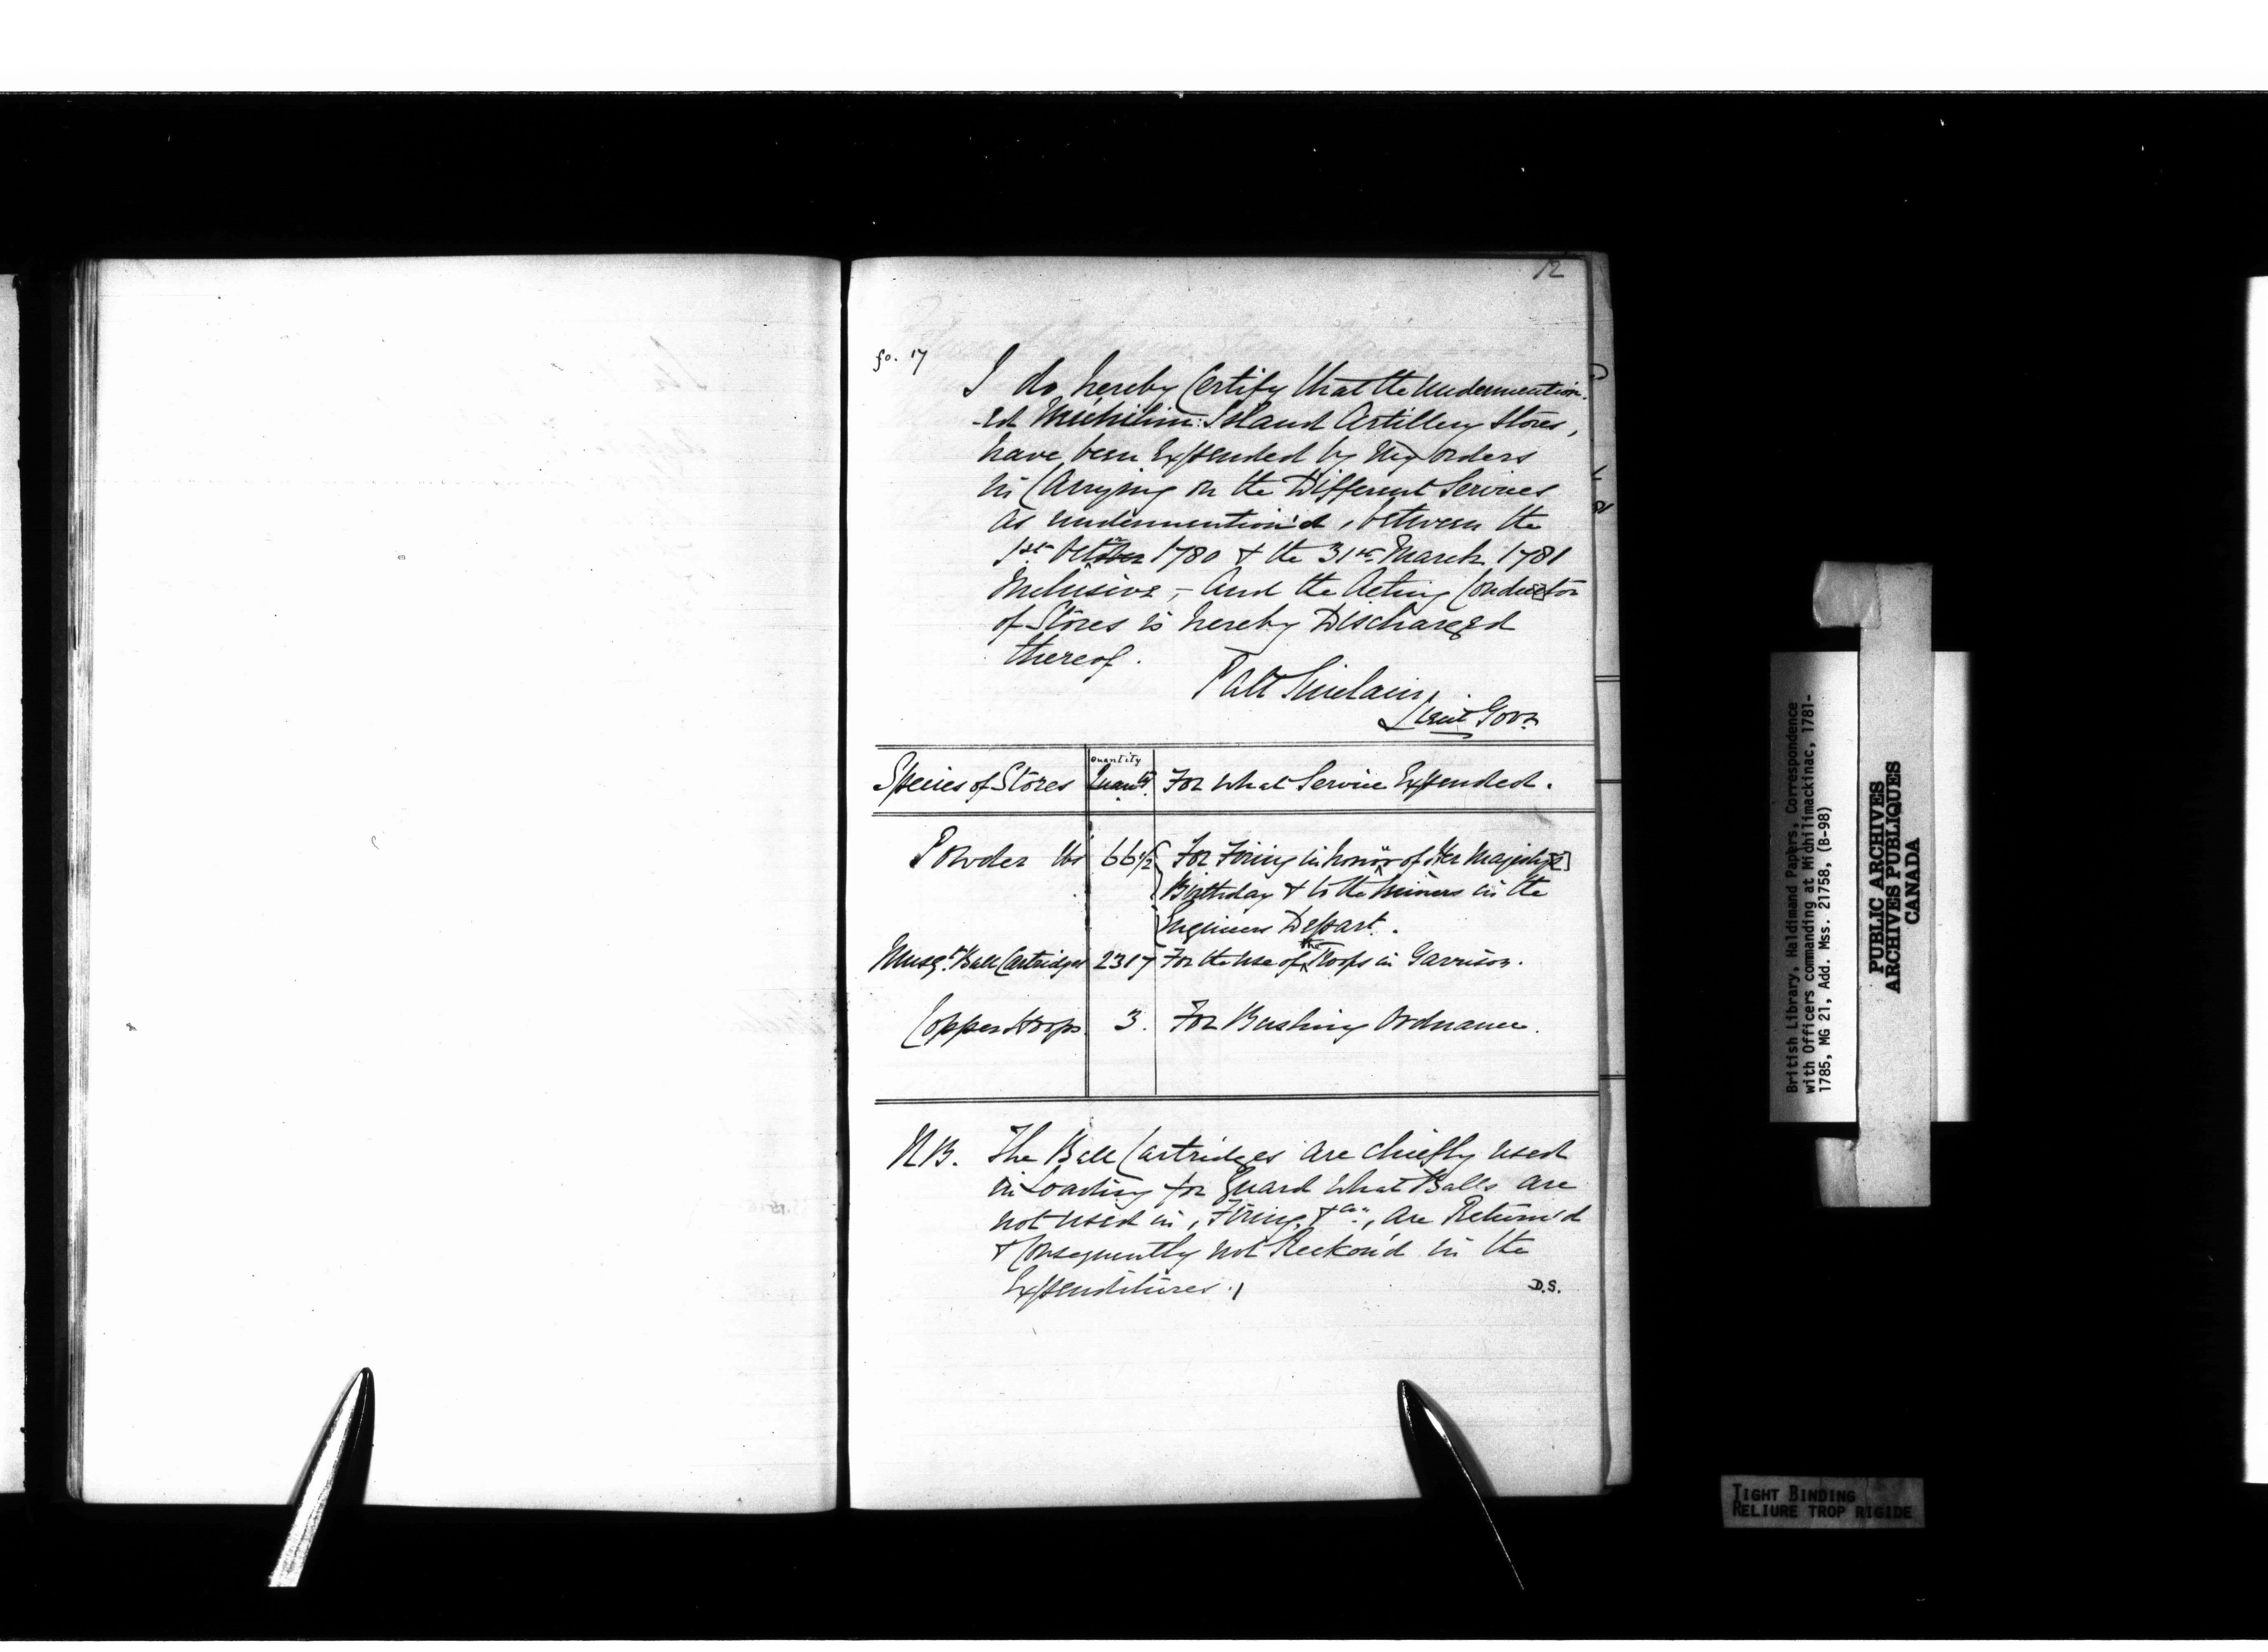 12
fo. 17
I do hereby Certify that the undermention-
-ed Michilim: Island Artillery Stores,
have been Expended by my orders
in Carrying on the Different Services
as undermention'd, between the
1st October 1780 & the 31st March 1781
Inclusive, - And the Acting Conductor
of Stores is hereby Discharged
thereof.
Patt Sinclair
Lieut Govr.
Species of Stores Quanty. For what Service Expended.
Quantity
Powder lbs 66 1/2 For Firing in honor of Her Majesty[s]
Birthday & to the Miners in the
Engineers Depart.
Musqt. Ball Cartridges 2317 For the use of the Troops in Garrison.
Copper Hoops 3. For Bushing Ordnance.
N.B. The Ball Cartridges are chiefly used
in Loading for Guard what Balls are
not used in, Firing, &ca., are Return'd
& Consequently not Reckon'd in the
Expenditures.
D.S.
British Library, Haldimand Papers, Correspondence
with Officers commanding at Midhilimackinac, 1781-
1785, MG 21, Add. Mss. 21758, (B-98)
PUBLIC ARCHIVES
ARCHIVES PUBLIQUES
CANADA
TIGHT BINDING
RELIURE TROP RIGIDE